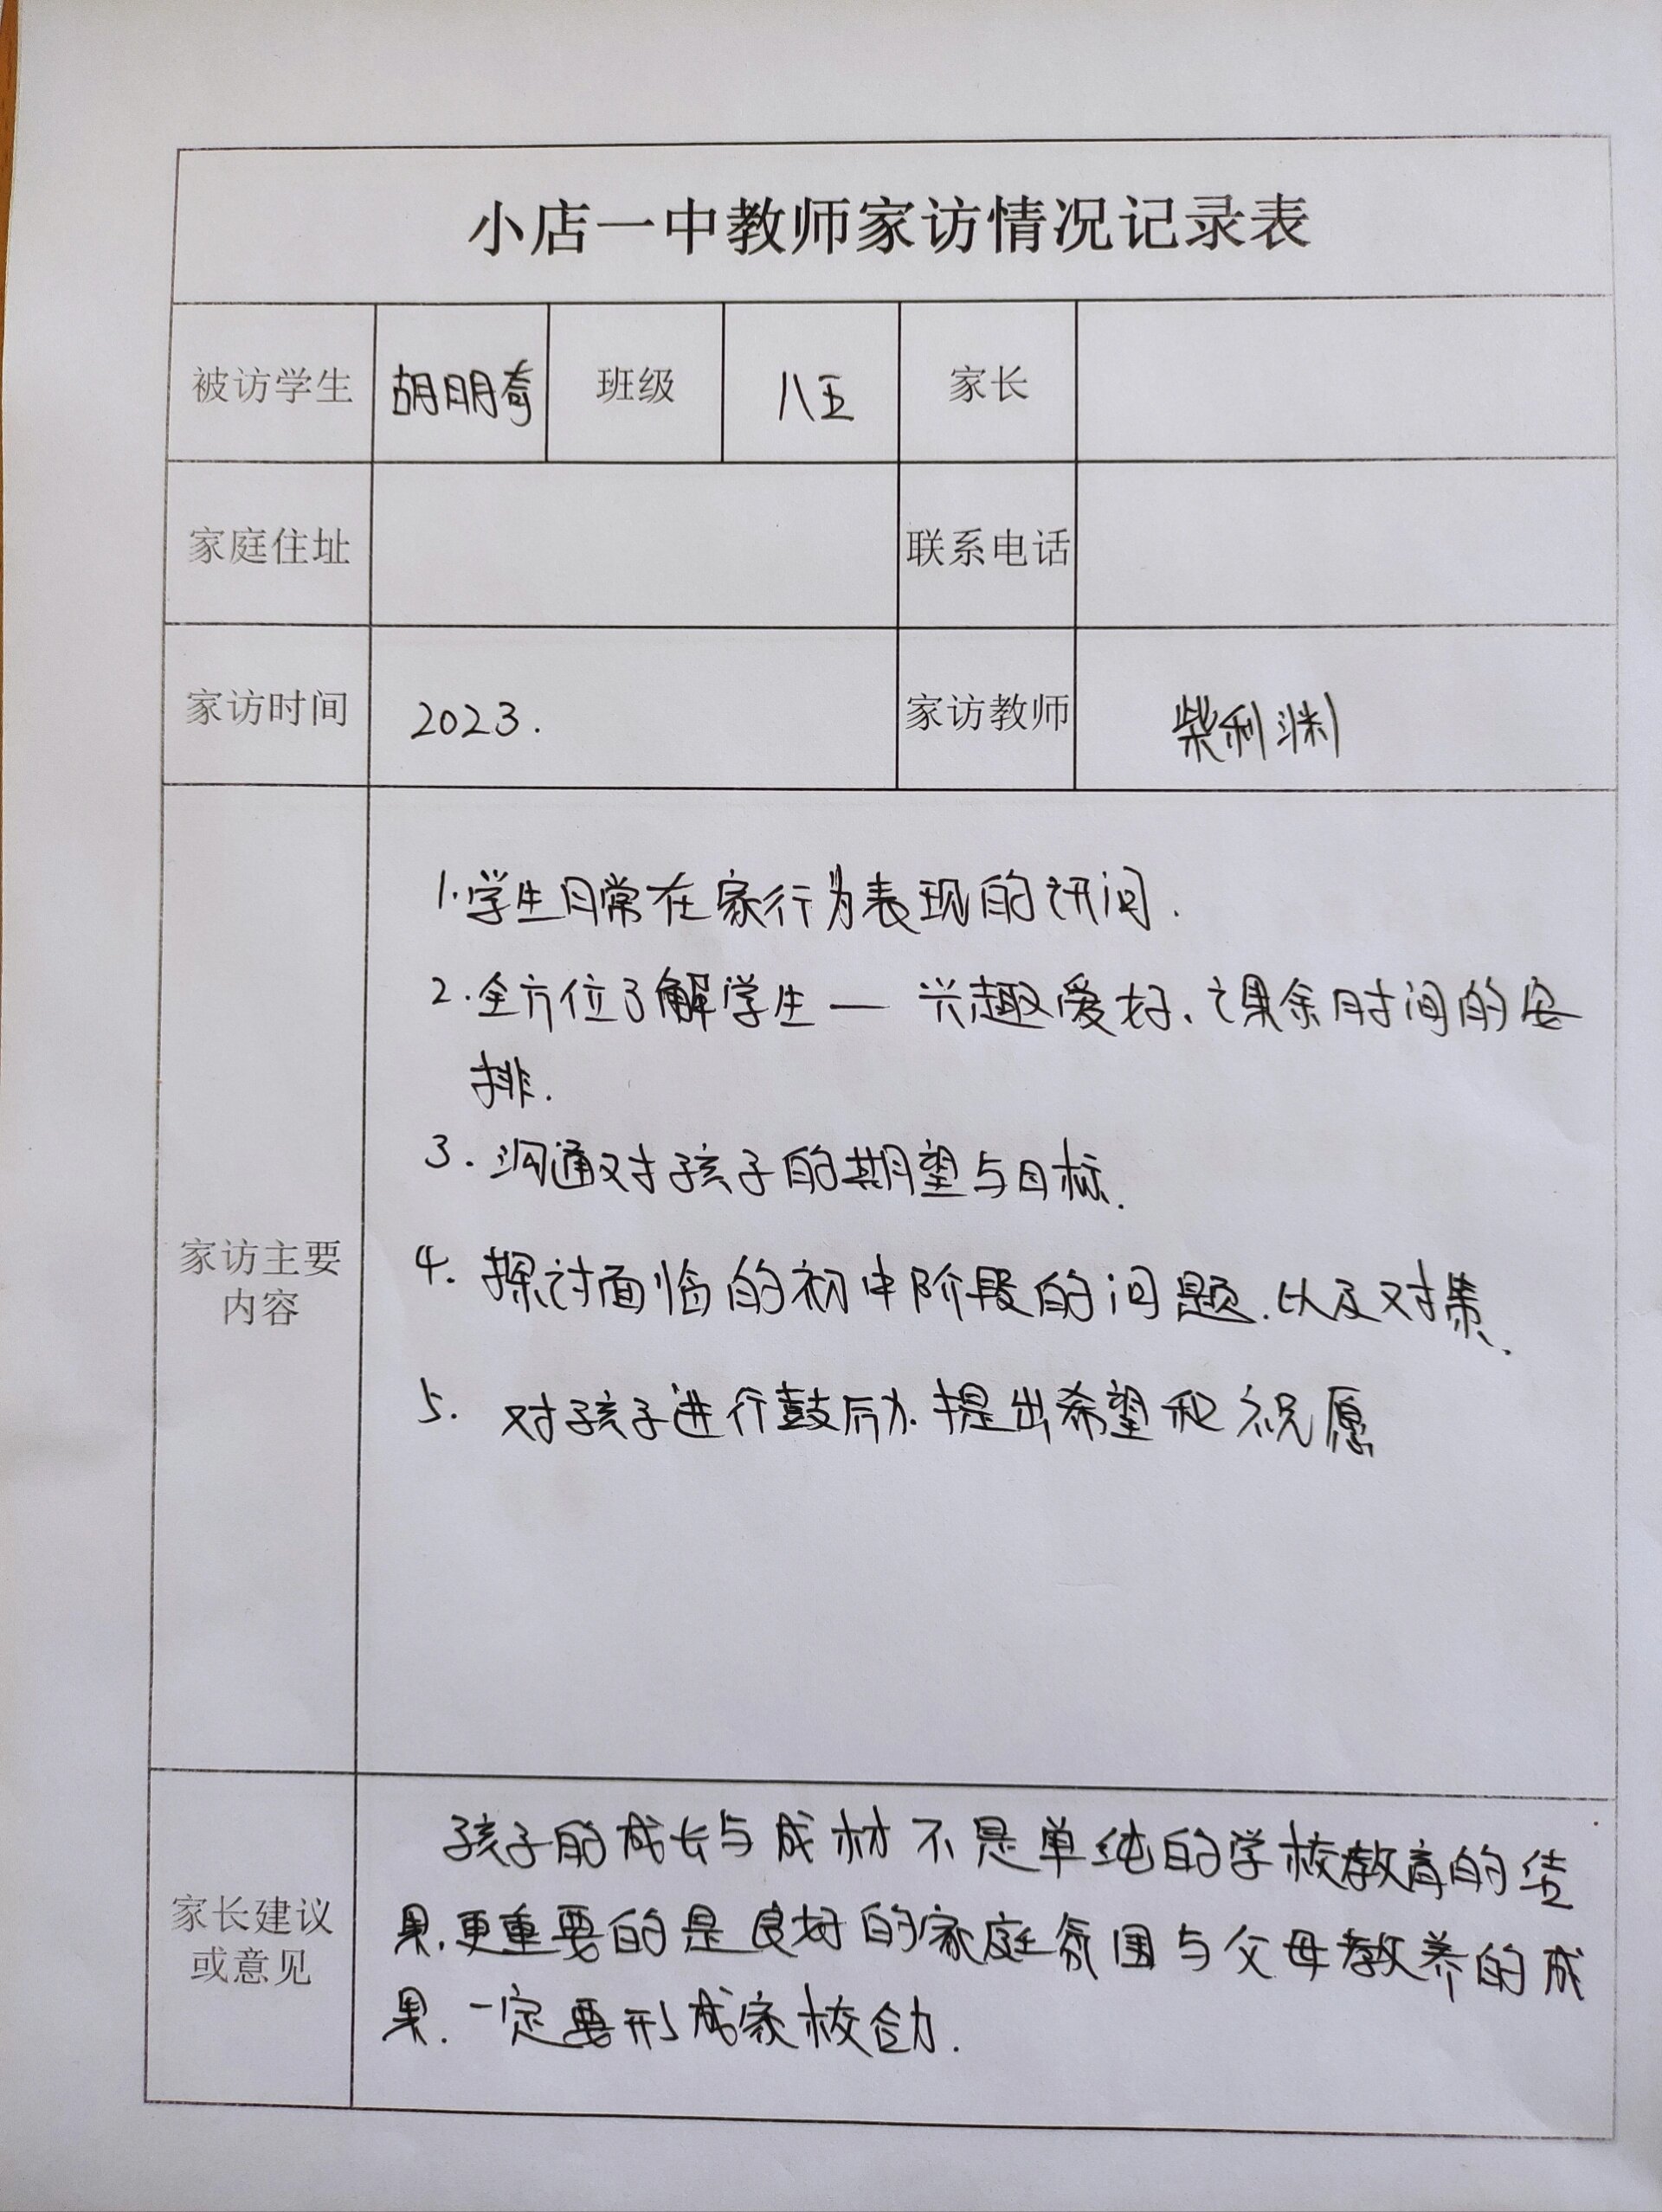 小店一中教师家访情况记录表
被访学生 胡朋奇 班级 八五 家长
家庭住址 联系电话
家访时间 2023. 家访教师 柴利渊
家访主要
内容
1.学生日常在家行为表现的访问.
2.全方位了解学生— 兴趣爱好、课余时间的安
排.
3.沟通对孩子的期望与目标.
4.探讨面临的初中阶段的问题.以及对策.
5.对孩子进行鼓励.提出希望和祝愿
家长建议
或意见
孩子的成长与成材不是单纯的学校教育的结
果.更重要的是良好的家庭氛围与父母教养的成
果.一定要形成家校合力.